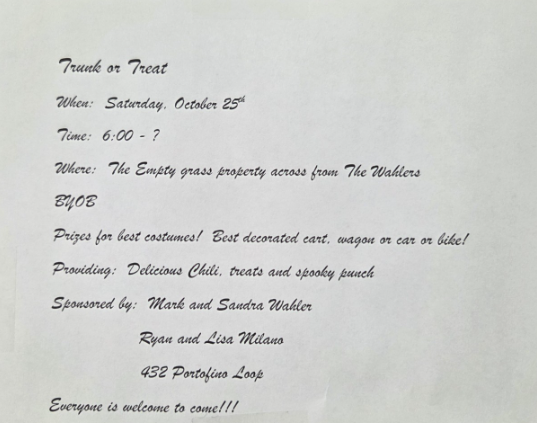 Trunk or Treat
When: Saturday, October 25th
Time: 6:00 - ?
Where: The Empty grass property across from The Wahlers
BYOB
Prizes for best costumes! Best decorated cart, wagon or car or bike!
Providing: Delicious Chili, treats and spooky punch
Sponsored by: Mark and Sandra Wahler
Ryan and Lisa Milano
432 Portofino Loop
Everyone is welcome to come!!!